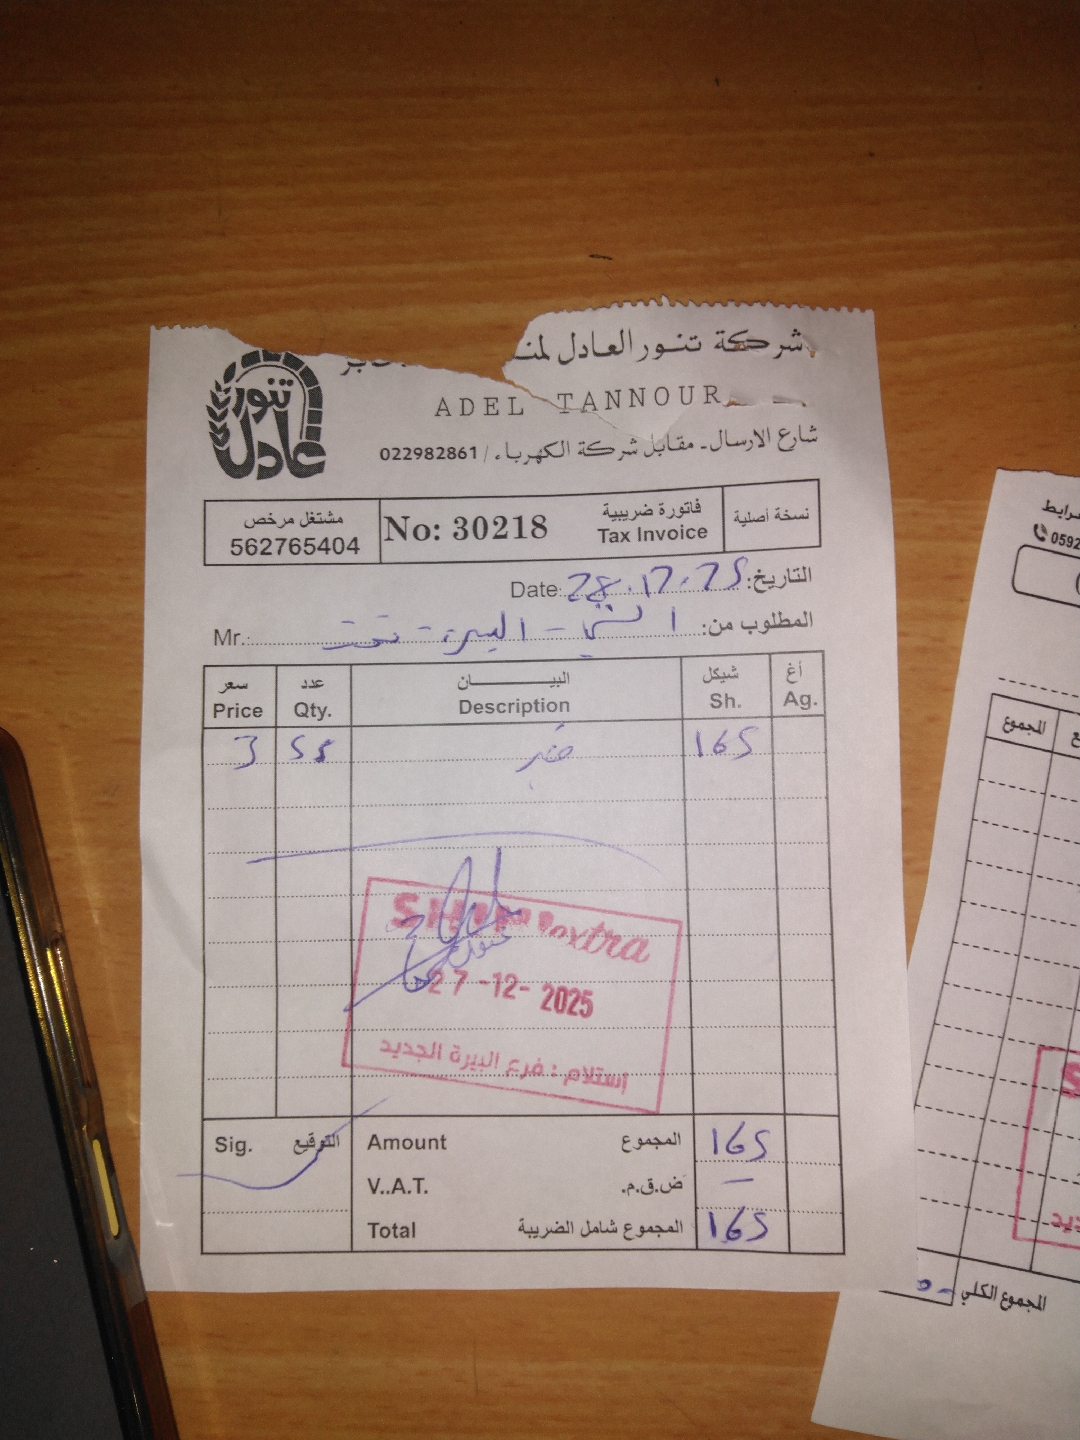 شركة تنور العادل
ADEL TANNOUR
شارع الارسال - مقابل شركة الكهرباء / 022982861
تنور عادل
نسخة أصلية
فاتورة ضريبية
Tax Invoice
No: 30218
مشتغل مرخص
562765404
التاريخ: Date: 28.12.25
المطلوب من: Mr.: البيرة - تحت
سعر عدد البيـــان شيكل أغ
Price Qty. Description Sh. Ag.
3 55 خبز 165
SHINI extra
27 -12- 2025
إستلام : فرع البيرة الجديد
Sig. التوقيع
Amount المجموع 165
V..A.T. ض.ق.م. —
Total المجموع شامل الضريبة 165
0592
المجموع
المجموع الكلي